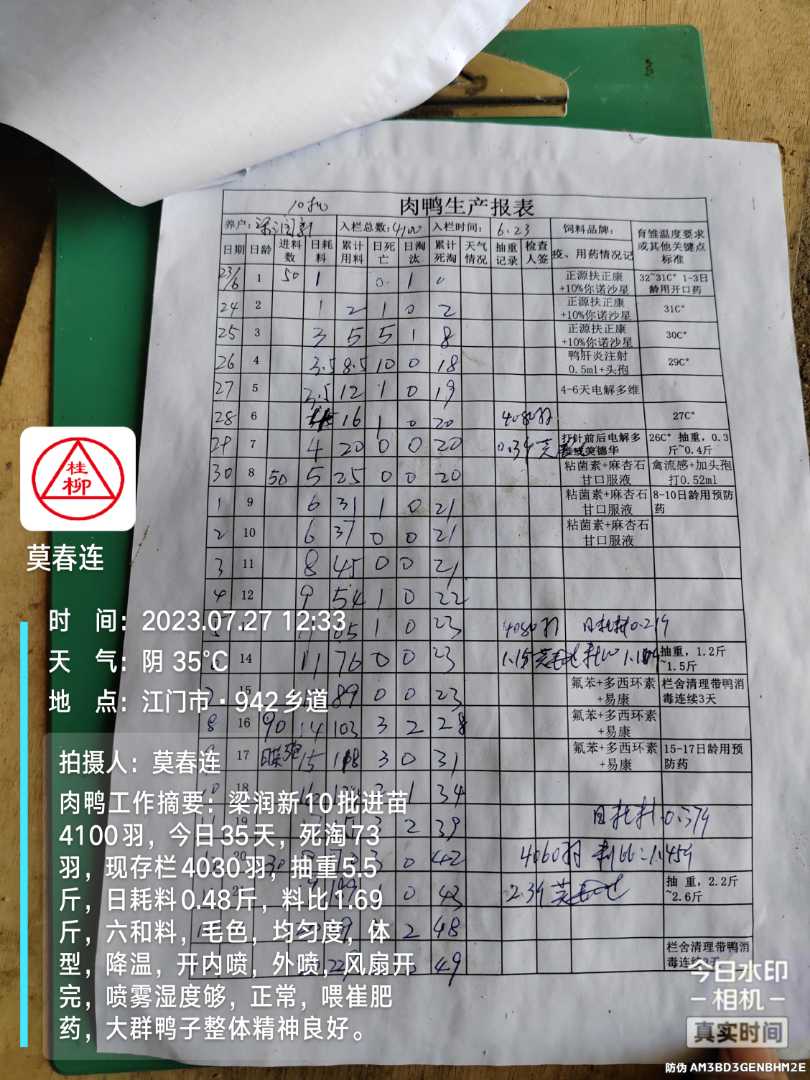 10批
肉鸭生产报表
养户: 梁润新 入栏总数: 4100 入栏时间: 6.23 饲料品牌: 育雏温度要求或其他关键点标准
日期 日龄 进料数 日耗料 累计用料 日死亡 日淘汰 累计死淘 天气情况 抽重记录 检查人签 疫、用药情况记
23/6 1 50 1 0 1 正源扶正康+10%你诺沙星 32~31C° 1-3日龄用开口药
24 2 1 2 1 0 2 正源扶正康+10%你诺沙星 31C°
25 3 3 5 5 1 8 正源扶正康+10%你诺沙星 30C°
26 4 3.5 8.5 10 0 18 鸭肝炎注射0.5ml+头孢 29C°
27 5 3.5 12 1 0 19 4-6天电解多维
28 6 16 1 0 20 4080羽 27C°
29 7 4 20 0 0 20 0.34 打针前后电解多 26C° 抽重，0.3斤~0.4斤
30 8 50 5 25 0 0 20 粘菌素+麻杏石甘口服液 禽流感+加头孢打0.52ml
1 9 6 31 1 0 21 粘菌素+麻杏石甘口服液 8-10日龄用预防药
2 10 6 37 0 0 21 粘菌素+麻杏石甘口服液
3 11 8 45 0 0 21
4 12 9 54 1 0 22
65 1 0 23 4080羽 日耗料0.27斤
14 11 76 0 0 23 1.15 抽重，1.2斤~1.5斤
15 89 0 0 23 氟苯+多西环素+易康 栏舍清理带鸭消毒连续3天
8 16 90 14 103 3 2 28 氟苯+多西环素+易康
17 15 118 3 0 31 氟苯+多西环素+易康 15-17日龄用预防药
18 1 34
19 3 2 39 日耗料0.37斤
20 0 42 4060羽 料比:1.045斤
1 0 43 2.3斤 抽重，2.2斤~2.6斤
2 48
49 栏舍清理带鸭消毒连续3天
桂柳
莫春连
时 间: 2023.07.27 12:33
天 气: 阴 35℃
地 点: 江门市·942乡道
拍摄人: 莫春连
肉鸭工作摘要: 梁润新10批进苗
4100羽，今日35天，死淘73
羽，现存栏4030羽，抽重5.5
斤，日耗料0.48斤，料比1.69
斤，六和料，毛色，均匀度，体
型，降温，开内喷，外喷，风扇开
完，喷雾湿度够，正常，喂崔肥
药，大群鸭子整体精神良好。
今日水印
相机
真实时间
防伪 AM3BD3GENBHM2E